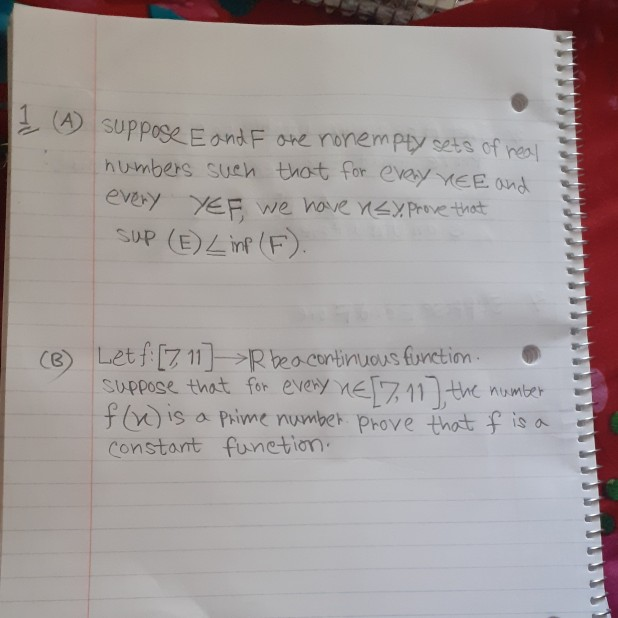 1 (A) suppose E and F are nonempty sets of real
numbers such that for every x∈E and
every y∈F, we have x≤y. Prove that
sup (E) ≤ inf (F).
(B) Let f: [7, 11] → R be a continuous function.
suppose that for every x∈[7, 11], the number
f(x) is a prime number. prove that f is a
constant function.